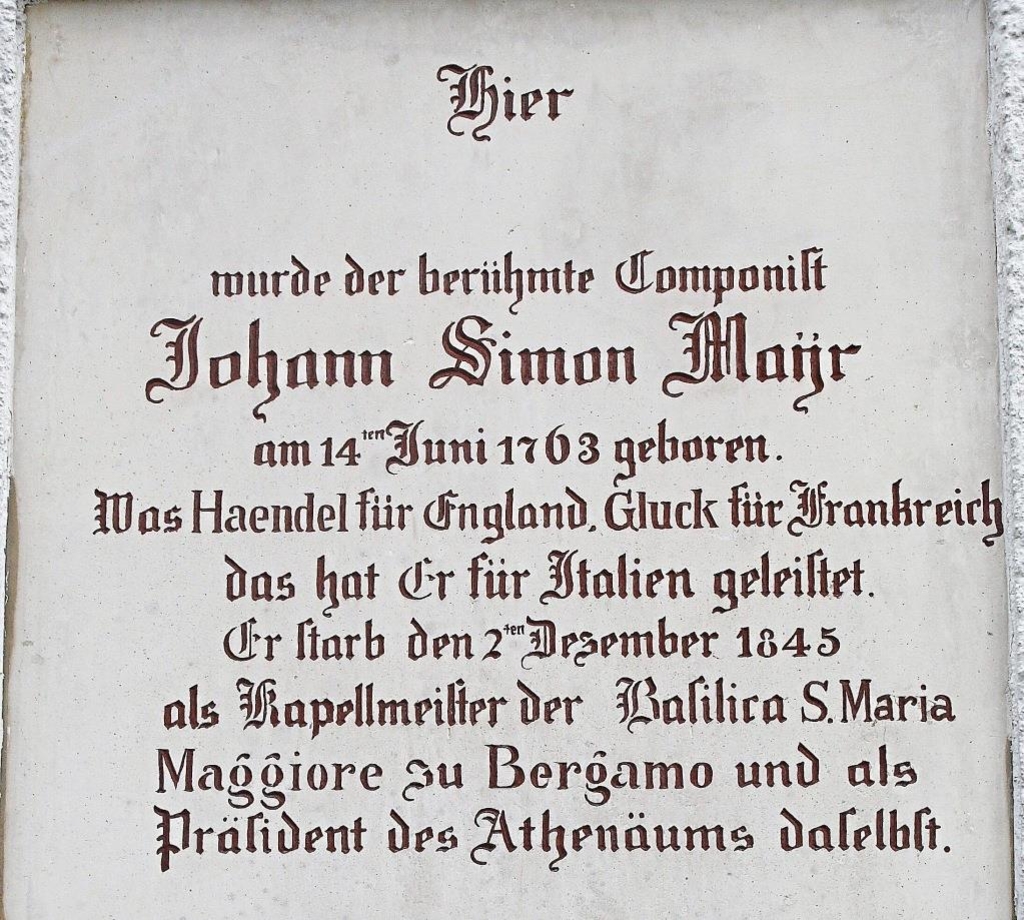 Hier
wurde der berühmte Componiſt
Johann Simon Maÿr
am 14ten Juni 1763 geboren.
Was Haendel für England, Gluck für Frankreich
das hat Er für Italien geleiſtet.
Er ſtarb den 2ten Dezember 1845
als Kapellmeiſter der Baſilica S. Maria
Maggiore zu Bergamo und als
Präſident des Athenäums daſelbſt.